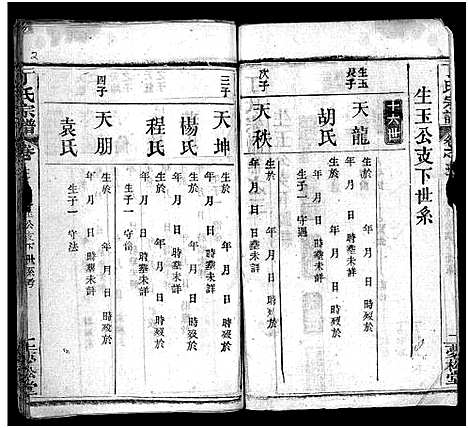 生玉公支下世系
十六世
生玉
長子
天龍
生於 年 月 日 時歿於
年 月 日 時塟未詳
胡氏
生於 年 月 日 時歿於
年 月 日 時塟未詳
生子一 守邁
次子
天秩
生於 年 月 日 時歿於
年 月 日 時塟未詳
三子
天坤
生於 年 月 日 時歿於
年 月 日 時塟未詳
楊氏
程氏
生於 年 月 日 時歿於
年 月 日 時塟未詳
生子一 守倫
四子
天朋
生於 年 月 日 時歿於
年 月 日 時塟未詳
袁氏
生子一 守法
丁氏宗譜
夢松堂